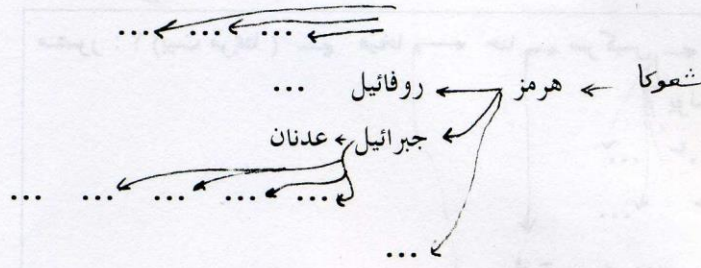 ... ... ...
شعوكا ← هرمز ← روفائيل ...
جبرائيل ← عدنان
... ... ... ... ...
...